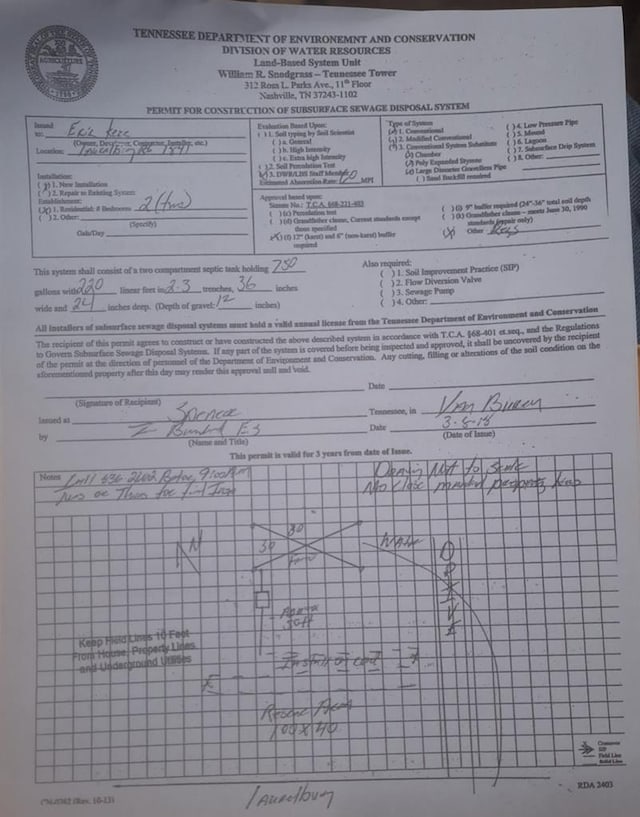 TENNESSEE DEPARTMENT OF ENVIRONEMNT AND CONSERVATION
DIVISION OF WATER RESOURCES
Land-Based System Unit
William R. Snodgrass – Tennessee Tower
312 Rosa L. Parks Ave., 11th Floor
Nashville, TN 37243-1102
PERMIT FOR CONSTRUCTION OF SUBSURFACE SEWAGE DISPOSAL SYSTEM
Issued to: Eric
(Owner, Developer, Contractor, Installer, etc.)
Location:
Installation:
1. New Installation
( ) 2. Repair to Existing System
Establishment:
1. Residential: # Bedrooms 2 (two)
( ) 2. Other:
(Specify)
Gals/Day
Evaluation Based Upon:
( ) 1. Soil typing by Soil Scientist
( ) a. General
( ) b. High Intensity
( ) c. Extra high Intensity
( ) 2. Soil Percolation Test
3. DWR/LBS Staff Member
Estimated Absorption Rate: MPI
Type of System
1. Conventional
2. Modified Conventional
3. Conventional System Substitute
Chamber
Poly Expanded Styrene
Large Diameter Gravelless Pipe
( ) Sand Backfill required
( ) 4. Low Pressure Pipe
( ) 5. Mound
( ) 6. Lagoon
( ) 7. Subsurface Drip System
( ) 8. Other:
Approval based upon:
Statute No.: T.C.A. §68-221-403
( ) (c) Percolation test
( ) (d) Grandfather clause, Current standards except those specified
(f) 12" (karst) and 6" (non-karst) buffer required
( ) (i) 9" buffer required (24"-36" total soil depth
( ) (k) Grandfather clause – meets June 30, 1990 standards (repair only)
(X) Other Regs
This system shall consist of a two compartment septic tank holding 750
gallons with 220 linear feet in 2-3 trenches, 36 inches
wide and 24 inches deep. (Depth of gravel: 12 inches)
Also required:
( ) 1. Soil Improvement Practice (SIP)
( ) 2. Flow Diversion Valve
( ) 3. Sewage Pump
( ) 4. Other:
All installers of subsurface sewage disposal systems must hold a valid annual license from the Tennessee Department of Environment and Conservation
The recipient of this permit agrees to construct or have constructed the above described system in accordance with T.C.A. §68-401 et.seq., and the Regulations
to Govern Subsurface Sewage Disposal Systems. If any part of the system is covered before being inspected and approved, it shall be uncovered by the recipient
of the permit at the direction of personnel of the Department of Environment and Conservation. Any cutting, filling or alterations of the soil condition on the
aforementioned property after this day may render this approval null and void.
Date
(Signature of Recipient)
Issued at Spencer Tennessee, in Van Buren
by Date 3-5-15
(Name and Title) (Date of Issue)
This permit is valid for 3 years from date of issue.
Notes Call 836 Before 9:00 AM
Drawing Not to Scale
No Clear marked property lines
N
80
50
DRIVE
30ft
Keep Field Lines 10 Feet
From House, Property Lines
and Underground Utilities
Install on
Reserve Area
100 x 40
Crossover
SIP
Field Line
Solid Line
Laurelburg
CN-0762 (Rev. 10-13)
RDA 2403